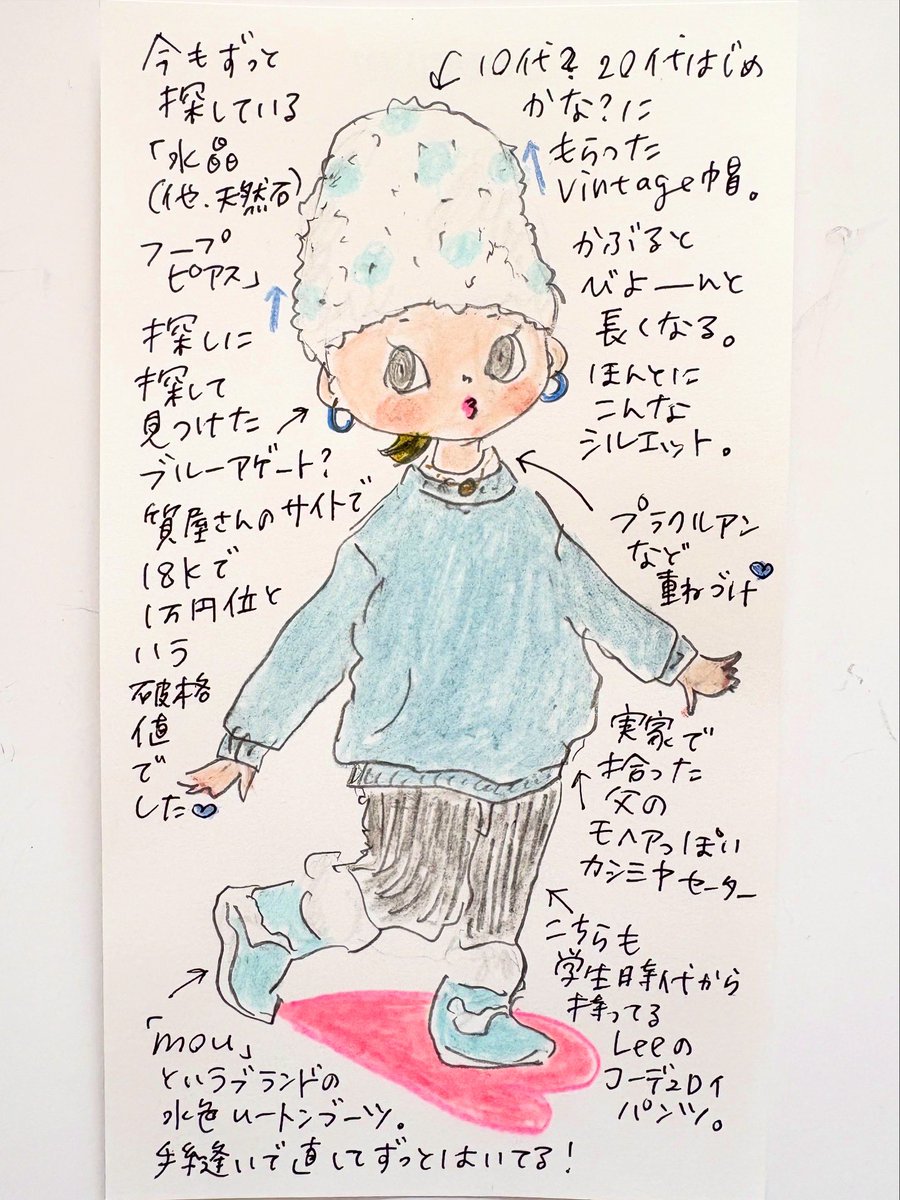 今もずっと
探している
「水晶
(他、天然石)
フープ
ピアス」
探しに
探して
見つけた
ブルーアゲート?
質屋さんのサイトで
18kで
1万円位と
いう
破格
値
で
した
10代?20代はじめ
かな?に
もらった
vintage帽。
かぶると
びよーんと
長くなる。
ほんとに
こんな
シルエット。
プラクルアン
など
重ねづけ
実家で
拾った
父の
モヘアっぽい
カシミヤセーター
こちらも
学生時代から
持ってる
Leeの
コーデュロイ
パンツ。
「mou」
というブランドの
水色ムートンブーツ。
手縫いで直してずっとはいてる!